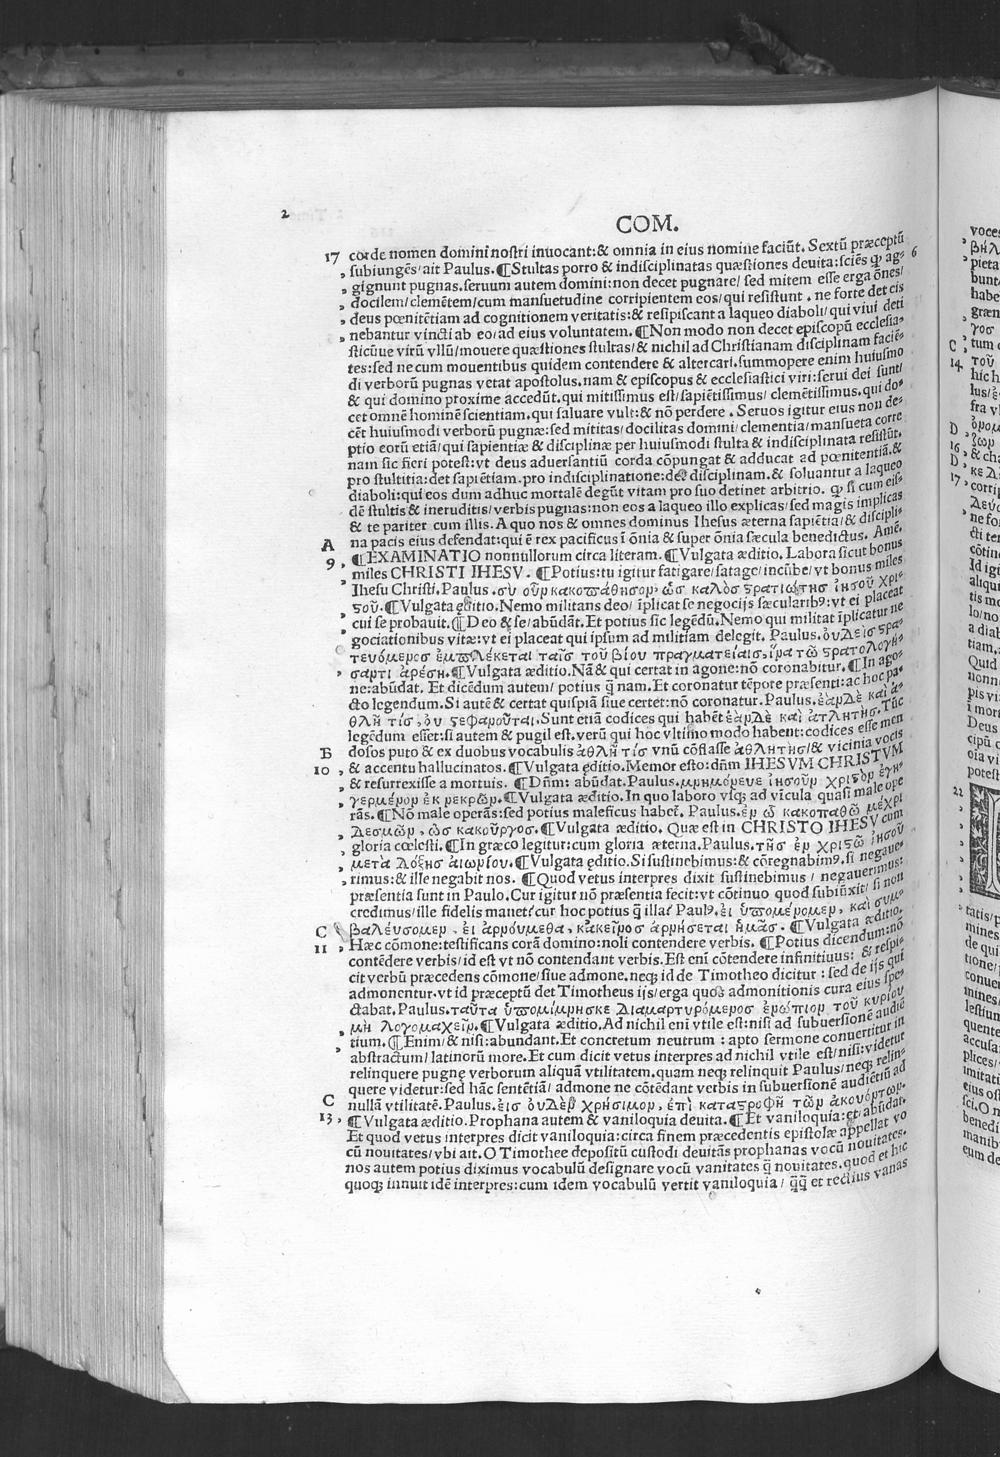 2
COM.
17 corde nomen domini nostri inuocant:& omnia in eius nomine faciũt. Sextũ præceptũ 6
, subiungẽs/ait Paulus.¶Stultas porro & indisciplinatas quæstiones deuita:sciẽs ꝙ ag-
, gignunt pugnas.seruum autem domini:non decet pugnare/ sed mitem esse erga õnes/
, docilem/clemẽtem/cum mansuetudine corripientem eos/qui resistunt . ne forte det eis
, deus pœnitẽtiam ad cognitionem veritatis:& resipiscant a laqueo diaboli/ qui viui deti
, nebantur vincti ab eo/ad eius voluntatem.¶Non modo non decet episcopũ ecclesia-
sticũue virũ vllũ/mouere quæstiones stultas/& nichil ad Christianam disciplinam faciẽ-
tes:sed ne cum mouentibus quidem contendere & altercari.summopere enim huiusmo
di verborũ pugnas vetat apostolus.nam & episcopus & ecclesiastici viri:serui dei sunt/
& qui domino proxime accedũt.qui mitissimus est/sapiẽtissimus/ clemẽtissimus.qui do-
cet omnẽ hominẽ scientiam.qui saluare vult:& nõ perdere . Seruos igitur eius non de-
cẽt huiusmodi verborũ pugnæ:sed mititas/docilitas domini/clementia/mansueta corre
ptio eorũ etiã/qui sapientiæ & disciplinæ per huiusmodi stulta & indisciplinata resistũt.
nam sic fieri potest:vt deus aduersantiũ corda cõpungat & adducat ad pœnitentiã.&
pro stultitia:det sapiẽtiam.pro indisciplinatione:det disciplinam.& soluantur a laqueo
diaboli:qui eos dum adhuc mortalẽ degũt vitam pro suo detinet arbitrio. ꝙ si cum eis-
dẽ stultis & ineruditis/verbis pugnas:non eos a laqueo illo explicas/sed magis implicas
& te pariter cum illis. A quo nos & omnes dominus Ihesus æterna sapiẽtia/& discipli-
A na pacis eius defendat:qui ẽ rex pacificus ĩ õnia & super õnia sæcula benedictus. Amẽ.
9 , ¶EXAMINATIO nonnullorum circa literam.¶Vulgata æditio. Labora sicut bonus
miles CHRISTI IHESV. ¶Potius:tu igitur fatigare/satage/incũbe/vt bonus miles
, Ihesu Christi.Paulus.σὺ οὖν κακοπάθησον, ὡς καλὸς ϛρατιώτης ἰησοῦ χρι-
ϛοῦ.¶Vulgata æditio.Nemo militans deo/ ĩplicat se negocijs sæcularibꝰ:vt ei placeat
, cui se probauit.¶Deo & se/abũdãt.Et potius sic legẽdũ.Nemo qui militat ĩplicatur ne
, gociationibus vitæ:vt ei placeat qui ipsum ad militiam delegit. Paulus.ὀυδεὶς ϛρα-
τευόμενος ἐμπλέκεται ταῖς τοῦ βίου πραγματείαις, ἵνα τῷ ϛρατολογή-
, σαντι ἀρέσῃ.¶Vulgata æditio.Nã & qui certat in agone:nõ coronabitur.¶In ago-
ne:abũdat. Et dicẽdum autem/ potius q̃ nam.Et coronatur tẽpore præsenti:ac hoc pa-
cto legendum.Si autẽ & certat quispiã siue certet:nõ coronatur.Paulus.ἐὰν δὲ καὶ ἀ-
θλῆ τίς, ὀυ ϛεφανοῦται.Sunt etiã codices qui habẽt ἐὰν δὲ καὶ ἀτλητὴς.Tũc
legẽdum essẽt:si autem & pugil est.verũ qui hoc vltimo modo habent:codices esse men
B dosos puto & ex duobus vocabulis ἀθλῆ τίς vnũ cõflasse ἀθλητὴς/& vicinia vocis
10 , & accentu hallucinatos.¶Vulgata æditio.Memor esto:dñm IHESVM CHRISTVM
, & resurrexisse a mortuis. ¶Dñm: abũdat.Paulus.μνημόνευε ἰησοῦν χριϛὸν ἐγη-
, γερμένον ἐκ νεκρῶν.¶Vulgata æditio.In quo laboro vsqꝫ ad vĩcula quasi male ope
rãs.¶Nõ male operãs:sed potius maleficus habet. Paulus.ἐν ᾧ κακοπαθῶ μέχρι
, δεσμῶν, ὡς κακοῦργος.¶Vulgata æditio. Quæ est in CHRISTO IHESV cum
, gloria cœlesti.¶In græco legitur:cum gloria æterna.Paulus.τῆς ἐν χριϛῷ ἰησοῦ
, μετὰ δόξης αἰωνίου.¶Vulgata æditio.Si sustinebimus:& cõregnabimꝰ.si negaue-
, rimus:& ille negabit nos. ¶Quod vetus interpres dixit sustinebimus / negauerimus:
præsentia sunt in Paulo.Cur igitur nõ præsentia fecit:vt cõtinuo quod subiũxit/ si non
credimus/ille fidelis manet/cur hoc potius q̃ illa? Paulꝰ.ἐι ὑπομένομεν, καὶ συμ-
C βαλέυσομεν . ἐι ἀρνόυμεθα, κἀκεῖνος ἀρνήσεται ἡμᾶς. ¶Vulgata æditio.
11 , Hæc cõmone:testificans corã domino:noli contendere verbis. ¶Potius dicendum:nõ
contẽdere verbis/id est vt nõ contendant verbis.Est eni cõtendere infinitiuus: & respi-
cit verbũ præcedens cõmone/siue admone.neqꝫ id de Timotheo dicitur : sed de ijs qui
admonentur.vt id præceptũ det Timotheus ijs/erga quos admonitionis cura eius spe-
, ctabat.Paulus.ταῦτα ὑπομίμνησκε διαμαρτυρόμενος ἐνώπιον τοῦ κυρίου
, μὴ λογομαχεῖν.¶Vulgata æditio.Ad nichil eni vtile est:nisi ad subuersionẽ audiẽ
tium.¶Enim/& nisi:abundant.Et concretum neutrum : apto sermone conuertitur in
, abstractum/ latinorũ more.Et cum dicit vetus interpres ad nichil vtile est/nisi:videtur
relinquere pugnę verborum aliquã vtilitatem.quam neqꝫ relinquit Paulus/neqꝫ relin-
quere videtur:sed hãc sentẽtiã/ admone ne cõtẽdant verbis in subuersionẽ audiẽtiũ ad
C nullã vtilitatẽ.Paulus.ἐις ὀυδὲν χρήσιμον, ἐπὶ καταϛροφῇ τῶν ἀκουόντων.
13 , ¶Vulgata æditio.Prophana autem & vaniloquia deuita.¶Et vaniloquia:et/abũdat.
Et quod vetus interpres dicit vaniloquia:circa finem præcedentis epistolæ appellat vo
cũ nouitates/vbi ait.O Timothee depositũ custodi deuitãs prophanas vocũ nouitates.
nos autem potius diximus vocabulũ designare vocũ vanitates q̃ nouitates.quod et hic
quoqꝫ innuit idẽ interpres:cum idem vocabulũ vertit vaniloquia/ q̃q̃ et rectius vanas